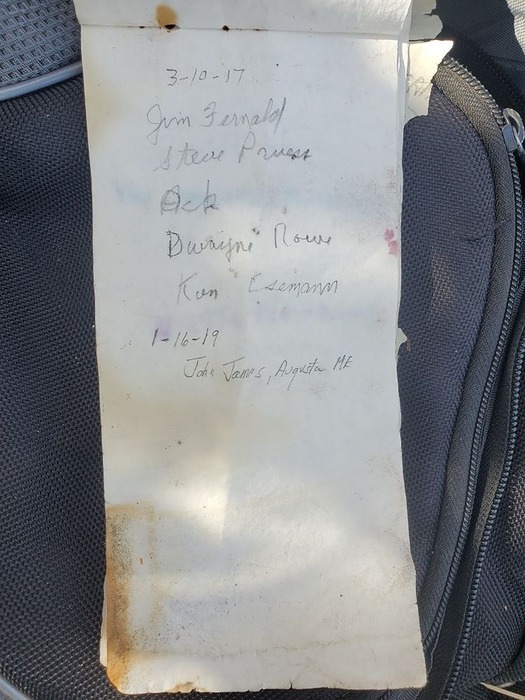 3-10-17
Jim Fernald
Steve Pruess
Ack
Dwayne Rowe
Ken Esemann
1-16-19
John James, Augusta ME